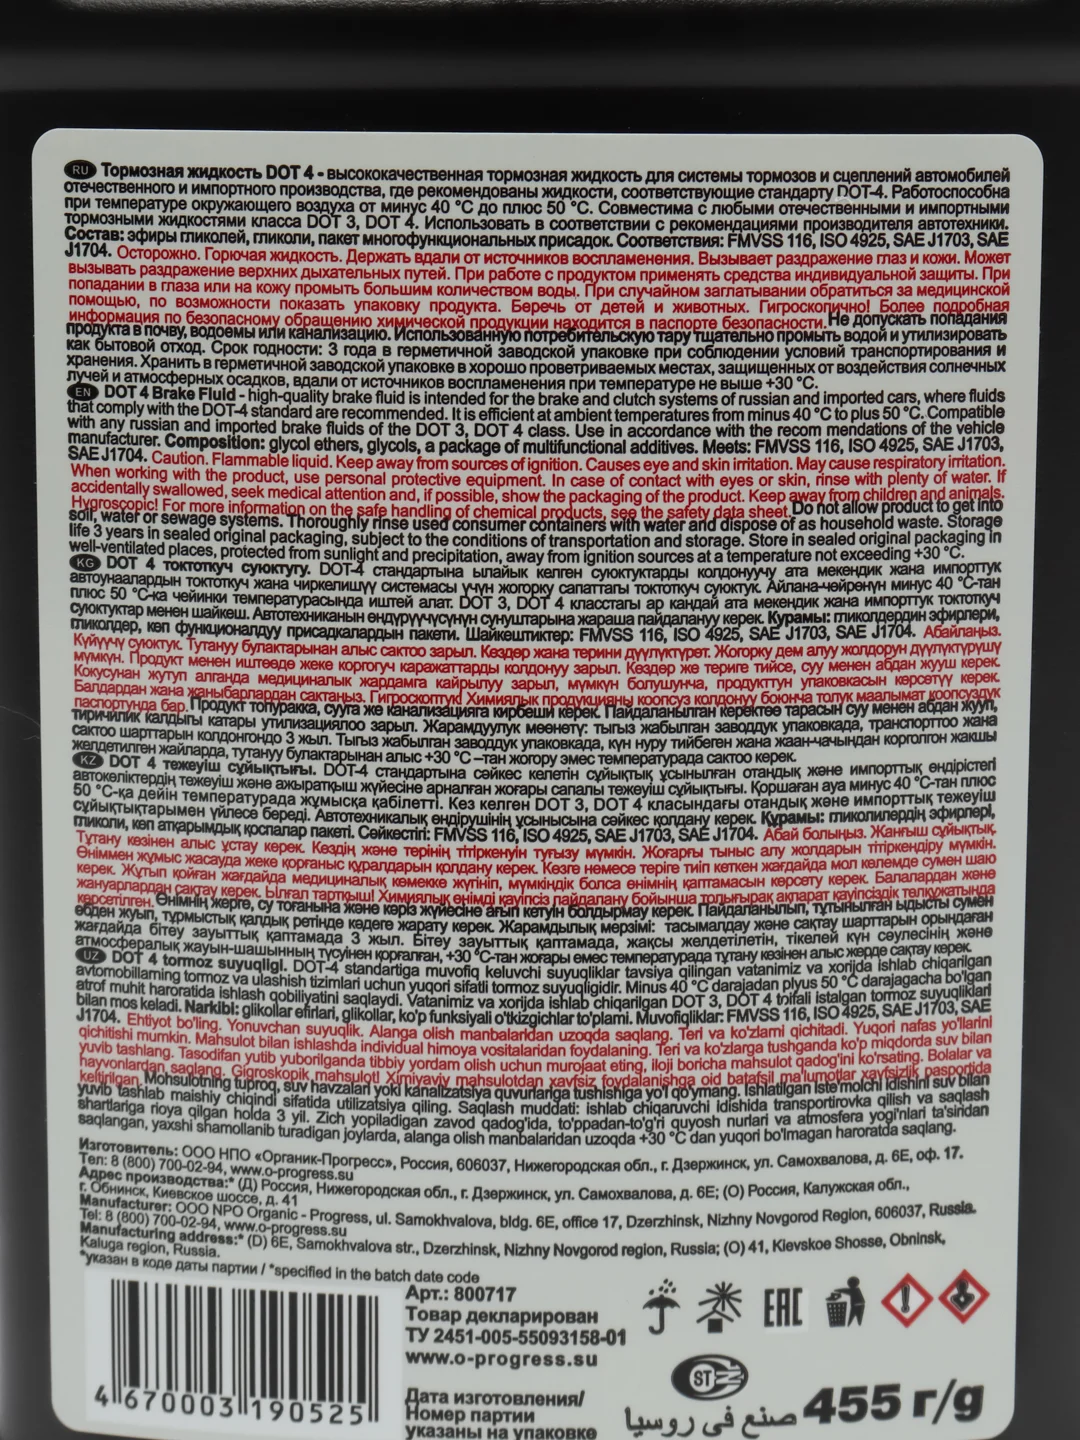 RU Тормозная жидкость DOT 4 - высококачественная тормозная жидкость для системы тормозов и сцеплений автомобилей
отечественного и импортного производства, где рекомендованы жидкости, соответствующие стандарту DOT-4. Работоспособна
при температуре окружающего воздуха от минус 40 °С до плюс 50 °С. Совместима с любыми отечественными и импортными
тормозными жидкостями класса DOT 3, DOT 4. Использовать в соответствии с рекомендациями производителя автотехники.
Состав: эфиры гликолей, гликоли, пакет многофункциональных присадок. Соответствия: FMVSS 116, ISO 4925, SAE J1703, SAE
J1704. Осторожно. Горючая жидкость. Держать вдали от источников воспламенения. Вызывает раздражение глаз и кожи. Может
вызывать раздражение верхних дыхательных путей. При работе с продуктом применять средства индивидуальной защиты. При
попадании в глаза или на кожу промыть большим количеством воды. При случайном заглатывании обратиться за медицинской
помощью, по возможности показать упаковку продукта. Беречь от детей и животных. Гигроскопично! Более подробная
информация по безопасному обращению химической продукции находится в паспорте безопасности. Не допускать попадания
продукта в почву, водоемы или канализацию. Использованную потребительскую тару тщательно промыть водой и утилизировать
как бытовой отход. Срок годности: 3 года в герметичной заводской упаковке при соблюдении условий транспортирования и
хранения. Хранить в герметичной заводской упаковке в хорошо проветриваемых местах, защищенных от воздействия солнечных
лучей и атмосферных осадков, вдали от источников воспламенения при температуре не выше +30 °С.
EN DOT 4 Brake Fluid - high-quality brake fluid is intended for the brake and clutch systems of russian and imported cars, where fluids
that comply with the DOT-4 standard are recommended. It is efficient at ambient temperatures from minus 40 °C to plus 50 °C. Compatible
with any russian and imported brake fluids of the DOT 3, DOT 4 class. Use in accordance with the recom mendations of the vehicle
manufacturer. Composition: glycol ethers, glycols, a package of multifunctional additives. Meets: FMVSS 116, ISO 4925, SAE J1703,
SAE J1704. Caution. Flammable liquid. Keep away from sources of ignition. Causes eye and skin irritation. May cause respiratory irritation.
When working with the product, use personal protective equipment. In case of contact with eyes or skin, rinse with plenty of water. If
accidentally swallowed, seek medical attention and, if possible, show the packaging of the product. Keep away from children and animals.
Hygroscopic! For more information on the safe handling of chemical products, see the safety data sheet. Do not allow product to get into
soil, water or sewage systems. Thoroughly rinse used consumer containers with water and dispose of as household waste. Storage
life 3 years in sealed original packaging, subject to the conditions of transportation and storage. Store in sealed original packaging in
well-ventilated places, protected from sunlight and precipitation, away from ignition sources at a temperature not exceeding +30 °C.
KG DOT 4 токтоткуч суюктугу. DOT-4 стандартына ылайык келген суюктуктарды колдонуучу ата мекендик жана импорттук
автоунаалардын токтоткуч жана чиркелишүү системасы үчүн жогорку сапаттагы токтоткуч суюктук. Айлана-чөйрөнүн минус 40 °С-тан
плюс 50 °С-ка чейинки температурасында иштей алат. DOT 3, DOT 4 класстагы ар кандай ата мекендик жана импорттук токтоткуч
суюктуктар менен шайкеш. Автотехниканын өндүрүүчүсүнүн сунуштарына жараша пайдалануу керек. Курамы: гликолдердин эфирлери,
гликолдер, көп функционалдуу присадкалардын пакети. Шайкештиктер: FMVSS 116, ISO 4925, SAE J1703, SAE J1704. Абайлаңыз.
Күйүүчү суюктук. Тутануу булактарынан алыс сактоо зарыл. Көздөр жана терини дүүлүктүрөт. Жогорку дем алуу жолдорун дүүлүктүрүшү
мүмкүн. Продукт менен иштөөдө жеке коргогуч каражаттарды колдонуу зарыл. Көздөр же териге тийсе, суу менен абдан жууш керек.
Кокусунан жутуп алганда медициналык жардамга кайрылуу зарыл, мүмкүн болушунча, продукттун упаковкасын көрсөтүү керек.
Балдардан жана жаныбарлардан сактаңыз. Гигроскоптук! Химиялык продукцияны коопсуз колдонуу боюнча толук маалымат коопсуздук
паспортунда бар. Продукт топуракка, сууга же канализацияга кирбеши керек. Пайдаланылган керектөө тарасын суу менен абдан жууп,
тиричилик калдыгы катары утилизациялоо зарыл. Жарамдуулук мөөнөтү: тыгыз жабылган заводдук упаковкада, транспорттоо жана
сактоо шарттарын колдонгондо 3 жыл. Тыгыз жабылган заводдук упаковкада, күн нуру тийбеген жана жаан-чачындан корголгон жакшы
желдетилген жайларда, тутануу булактарынан алыс +30 °С –тан жогору эмес температурада сактоо керек.
KZ DOT 4 тежеуіш сұйықтығы. DOT-4 стандартына сәйкес келетін сұйықтық ұсынылған отандық және импорттық өндірістегі
автокөліктердің тежеуіш және ажыратқыш жүйесіне арналған жоғары сапалы тежеуіш сұйықтығы. Қоршаған ауа минус 40 °С-тан плюс
50 °С-қа дейін температурада жұмысқа қабілетті. Кез келген DOT 3, DOT 4 класындағы отандық және импорттық тежеуіш
сұйықтықтарымен үйлесе береді. Автотехникалық өндірушінің ұсынысына сәйкес қолдану керек. Құрамы: гликолилердің эфирлері,
гликоли, көп атқарымдық қоспалар пакеті. Сәйкестігі: FMVSS 116, ISO 4925, SAE J1703, SAE J1704. Абай болыңыз. Жанғыш сұйықтық.
Тұтану көзінен алыс ұстау керек. Көздің және терінің тітіркенуін туғызу мүмкін. Жоғарғы тыныс алу жолдарын тітіркендіру мүмкін.
Өніммен жұмыс жасауда жеке қорғаныс құралдарын қолдану керек. Көзге немесе теріге тиіп кеткен жағдайда мол көлемде сумен шаю
керек. Жұтып қойған жағдайда медициналық көмекке жүгініп, мүмкіндік болса өнімнің қаптамасын көрсету керек. Балалардан және
жануарлардан сақтау керек. Ылғал тартқыш! Химиялық өнімді қауіпсіз пайдалану бойынша толығырақ ақпарат қауіпсіздік төлқұжатында
көрсетілген. Өнімнің жерге, су тоғанына және кәріз жүйесіне ағып кетуін болдырмау керек. Пайдаланылып, тұтынылған ыдысты сумен
әбден жуып, тұрмыстық қалдық ретінде кәдеге жарату керек. Жарамдылық мерзімі: тасымалдау және сақтау шарттарын орындаған
жағдайда бітеу зауыттық қаптамада 3 жыл. Бітеу зауыттық қаптамада, жақсы желдетілетін, тікелей күн сәулесінің және
атмосфералық жауын-шашынның түсуінен қорғалған, +30 °С-тан жоғары емес температурада тұтану көзінен алыс жерде сақтау керек.
UZ DOT 4 tormoz suyuqligi. DOT-4 standartiga muvofiq keluvchi suyuqliklar tavsiya qilingan vatanimiz va xorijda ishlab chiqarilgan
avtomobillarning tormoz va ulashish tizimlari uchun yuqori sifatli tormoz suyuqligidir. Minus 40 °C darajadan plyus 50 °C darajagacha bo'lgan
atrof muhit haroratida ishlash qobiliyatini saqlaydi. Vatanimiz va xorijda ishlab chiqarilgan DOT 3, DOT 4 toifali istalgan tormoz suyuqliklari
bilan mos keladi. Narkibi: glikollar efirlari, glikollar, ko'p funksiyali o'tkizgichlar to'plami. Muvofiqliklar: FMVSS 116, ISO 4925, SAE J1703, SAE
J1704. Ehtiyot bo'ling. Yonuvchan suyuqlik. Alanga olish manbalaridan uzoqda saqlang. Teri va ko'zlarni qichitadi. Yuqori nafas yo'llarini
qichitishi mumkin. Mahsulot bilan ishlashda individual himoya vositalaridan foydalaning. Teri va ko'zlarga tushganda ko'p miqdorda suv bilan
yuvib tashlang. Tasodifan yutib yuborilganda tibbiy yordam olish uchun murojaat eting, iloji boricha mahsulot qadog'ini ko'rsating. Bolalar va
hayvonlardan saqlang. Gigroskopik mahsulot! Ximiyaviy mahsulotdan xavfsiz foydalanishga oid batafsil ma'lumotlar xavfsizlik pasportida
keltirilgan. Mohsulotning tuproq, suv havzalari yoki kanalizatsiya quvurlariga tushishiga yo'l qo'ymang. Ishlatilgan iste'molchi idishini suv bilan
yuvib tashlab maishiy chiqindi sifatida utilizatsiya qiling. Saqlash muddati: ishlab chiqaruvchi idishida transportirovka qilish va saqlash
shartlariga rioya qilgan holda 3 yil. Zich yopiladigan zavod qadog'ida, to'ppadan-to'g'ri quyosh nurlari va atmosfera yog'inlari ta'siridan
saqlangan, yaxshi shamollanib turadigan joylarda, alanga olish manbalaridan uzoqda +30 °C dan yuqori bo'lmagan haroratda saqlang.
Изготовитель: ООО НПО «Органик-Прогресс», Россия, 606037, Нижегородская обл., г. Дзержинск, ул. Самохвалова, д. 6Е, оф. 17.
Тел: 8 (800) 700-02-94, www.o-progress.su
Адрес производства:* (Д) Россия, Нижегородская обл., г. Дзержинск, ул. Самохвалова, д. 6Е; (О) Россия, Калужская обл.,
г. Обнинск, Киевское шоссе, д. 41
Manufacturer: OOO NPO Organic - Progress, ul. Samokhvalova, bldg. 6E, office 17, Dzerzhinsk, Nizhny Novgorod Region, 606037, Russia.
Tel: 8 (800) 700-02-94, www.o-progress.su
Manufacturing address:* (D) 6E, Samokhvalova str., Dzerzhinsk, Nizhny Novgorod region, Russia; (O) 41, Kievskoe Shosse, Obninsk,
Kaluga region, Russia.
*указан в коде даты партии / *specified in the batch date code
Арт.: 800717
Товар декларирован
ТУ 2451-005-55093158-01
www.o-progress.su
EAC
ST
4 670003 190525
Дата изготовления/
Номер партии
указаны на упаковке
صنع في روسيا
455 г/g